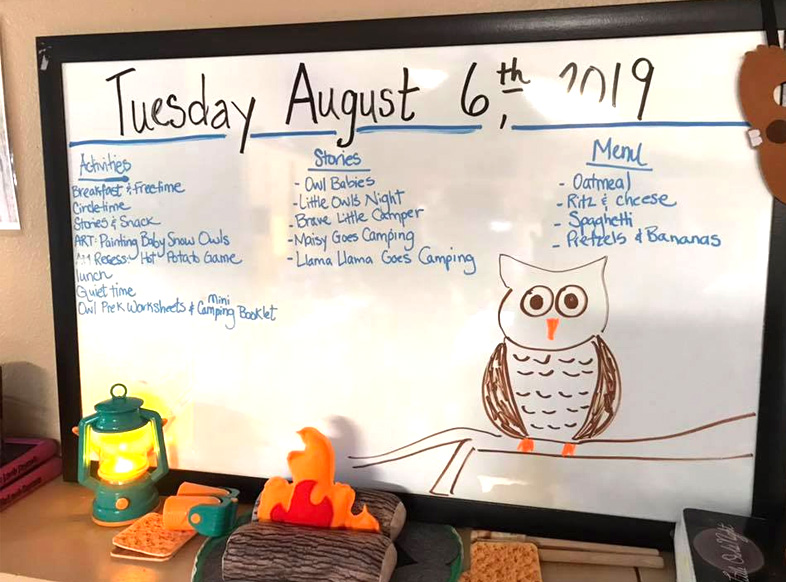 Tuesday August 6th, 2019
Activities
Breakfast & Freetime
Circletime
Stories & Snack
ART: Painting Baby Snow Owls
AM Resess: Hot Potato Game
lunch
Quiet time
Owl PreK Worksheets & Camping Mini Booklet
Stories
- Owl Babies
- Little Owls Night
- Brave Little Camper
- Maisy Goes Camping
- Llama Llama Goes Camping
Menu
- Oatmeal
- Ritz & cheese
- Spaghetti
- Pretzels & Bananas